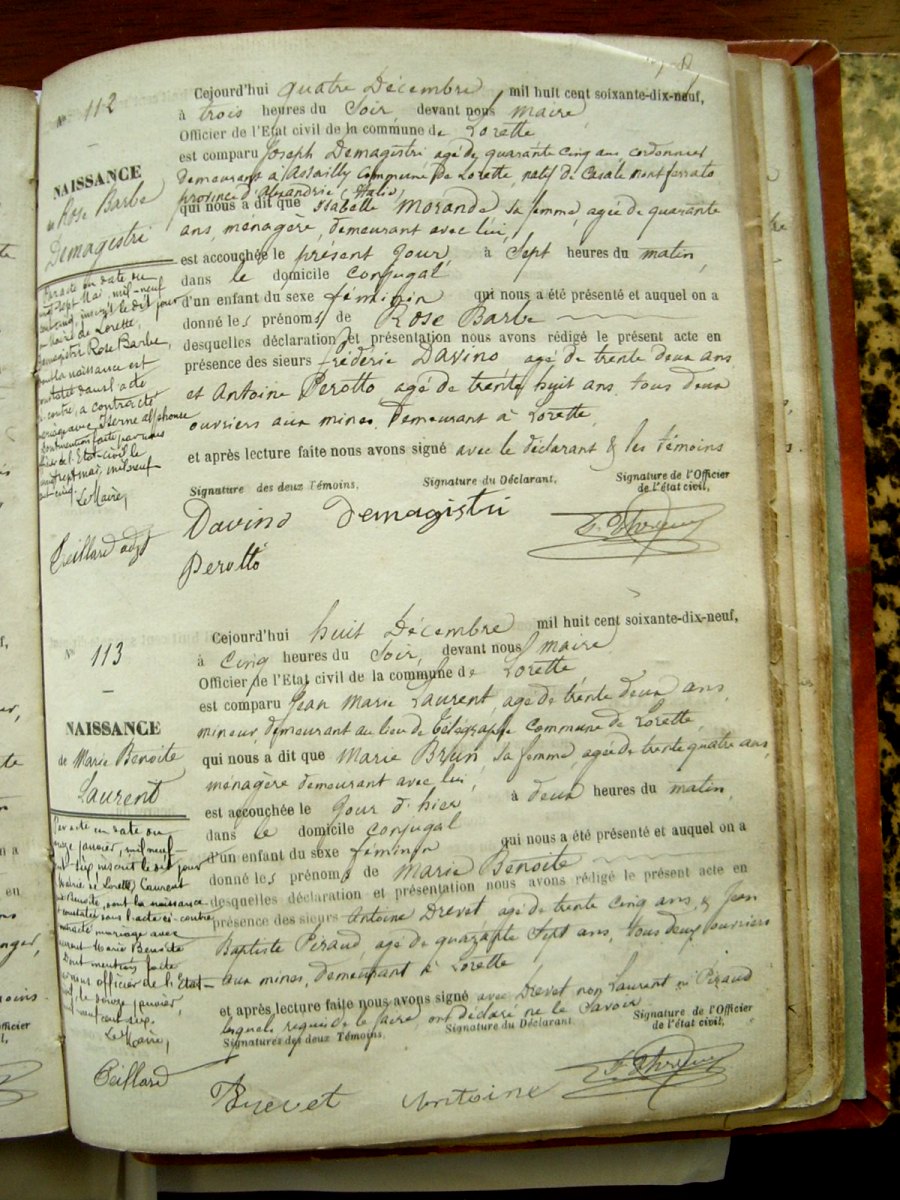 N° 112
NAISSANCE
de Rose Barbe
Demagistri
Par acte en date du
vingt sept Mai, mil neuf
cent cinq, inscrit le dit jour
Mairie de Lorette,
Demagistri Rose Barbe,
dont la naissance est
constatée dans l'acte
ci-contre, a contracté
mariage avec Iserne Alphonse
Dont mention faite par nous
officier de l'Etat-civil le
vingt sept mai, mil neuf
cent cinq.
Le Maire,
Teillard adjt
Cejourd'hui quatre Décembre mil huit cent soixante-dix-neuf,
à trois heures du Soir, devant nous maire
Officier de l'Etat civil de la commune de Lorette
est comparu Joseph Demagistri agé de quarante cinq ans cordonnier
demeurant à Assailly Commune de Lorette, natif de Casale montferrato
province d'Alexandrie (Italie)
qui nous a dit que Isabelle Morande, sa femme, agée de quarante
ans, ménagère, demeurant avec lui,
est accouchée le présent jour, à Sept heures du matin,
dans le domicile conjugal
d'un enfant du sexe féminin qui nous a été présenté et auquel on a
donné les prénoms de Rose Barbe
desquelles déclaration et présentation nous avons rédigé le présent acte en
présence des sieurs frédéric Davino agé de trente deux ans
et Antoine Perotto agé de trente huit ans, tous deux
ouvriers aux mines, demeurant à Lorette,
et après lecture faite nous avons signé avec le déclarant & les témoins
Signature des deux Témoins, Signature du Déclarant, Signature de l'Officier
de l'état civil,
Davino Demagistri
Perotto
N° 113
NAISSANCE
de Marie Benoite
Laurent
Par acte en date du
onze janvier, mil neuf
cent six inscrit le dit jour
Mairie de Lorette, Laurent
Marie Benoite, dont la naissance
est constatée dans l'acte ci-contre
a contracté mariage avec
Laurent Marie Benoite
Dont mention faite
par nous officier de l'Etat-
civil, le douze janvier
mil neuf cent six.
Le Maire,
Teillard
Cejourd'hui huit Décembre mil huit cent soixante-dix-neuf,
à Cinq heures du Soir, devant nous maire
Officier de l'Etat civil de la commune de Lorette
est comparu Jean Marie Laurent, agé de trente deux ans,
mineur, demeurant au lieu de Télégraphe commune de Lorette,
qui nous a dit que Marie Brun, sa femme, agée de trente quatre ans,
ménagère demeurant avec lui,
est accouchée le jour d'hier à deux heures du matin,
dans le domicile conjugal
d'un enfant du sexe féminin qui nous a été présenté et auquel on a
donné les prénoms de Marie Benoite
desquelles déclaration et présentation nous avons rédigé le présent acte en
présence des sieurs Antoine Drevet agé de trente cinq ans, & Jean
Baptiste Piraud, agé de quarante sept ans, tous deux ouvriers
aux mines, demeurant à Lorette,
et après lecture faite nous avons signé avec Drevet non Laurent ni Piraud
lesquels requis de le faire, ont déclaré ne le Savoir
Signatures des deux Témoins, Signature du Déclarant, Signature de l'Officier
de l'état civil,
Drevet Antoine